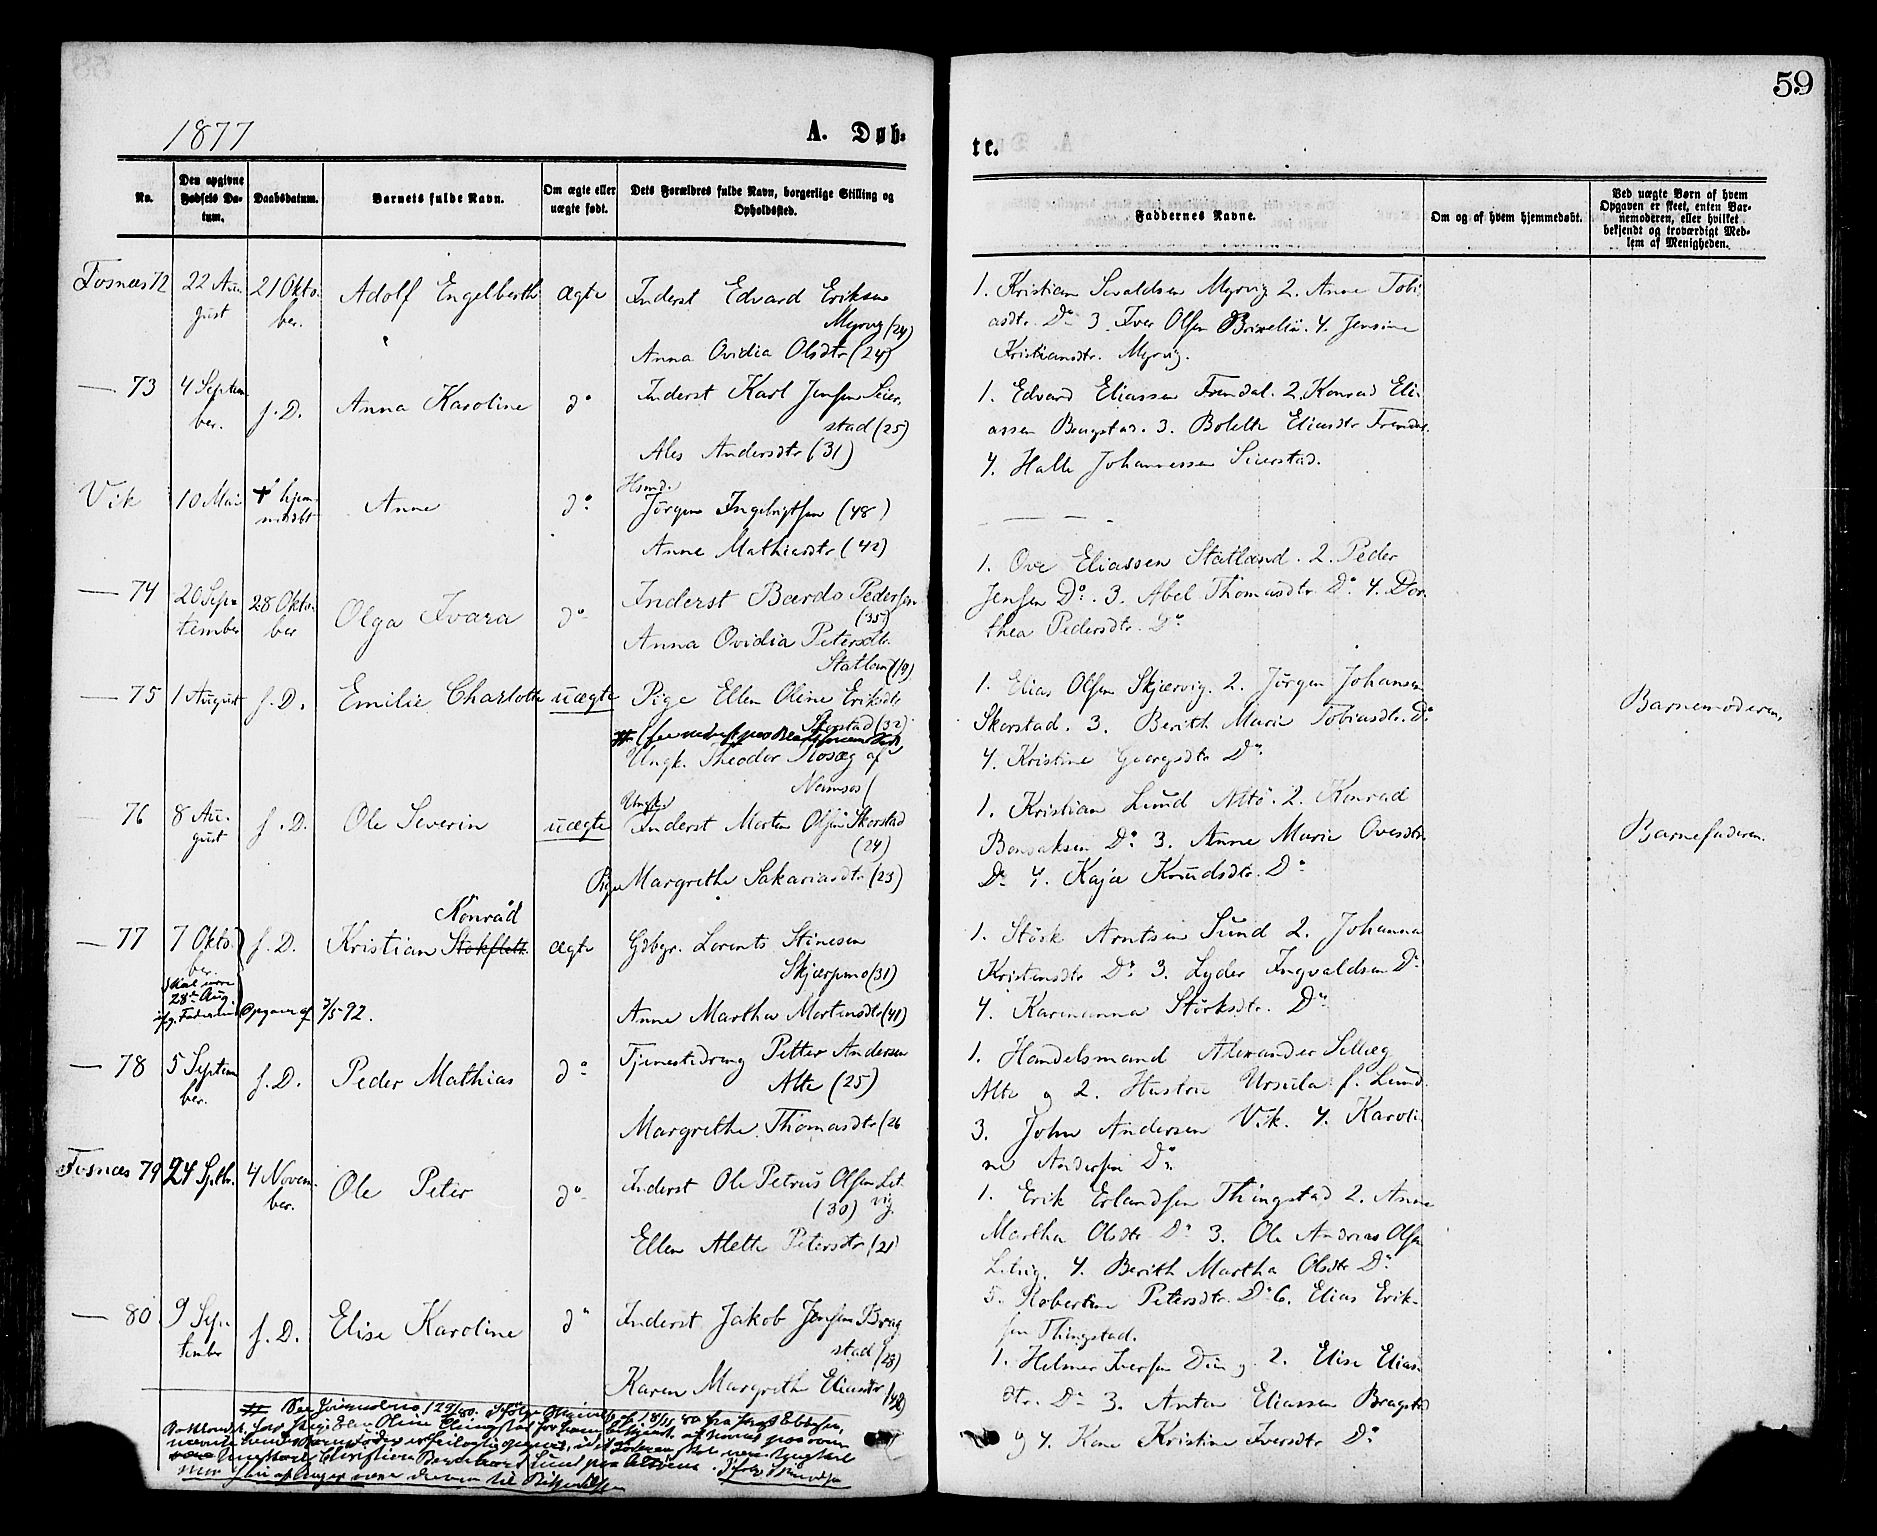 59
1877
A. Døb-
te.
No.
Den opgivne Fødsels Da-tum.
Daabsdatum.
Barnets fulde Navn.
Om ægte eller uægte født.
Dets Forældres fulde Navn, borgerlige Stilling og Opholdssted.
Faddernes Navne.
Om og af hvem hjemmedøbt.
Ved uægte Børn af hvem Opgaven er skeet, enten Bar-nemoderen, eller hvilket bekjendt og troværdigt Med-lem af Menigheden.
Fosnæs 72
22 Au-
gust
21 Okto-
ber.
Adolf Engelberth
ægte
Inderst Edvard Eriksen
Myrvig (24)
Anna Ovidia Olsdtr (24)
1. Kristian Sivaldsen Myrvig 2. Anne Tobi-
asdtr. Do 3. Iver Olsen 4. Jensine
Kristiansdtr. Myrvig.
— 73
4 Septem
ber.
s. D.
Anna Karoline
do
Inderst Karl Jensen Seier-
stad (25)
Ales Andersdtr (31)
1. Edvard Eliassen Fremdal. 2. Konrad Eli-
assen Bragstad. 3. Bolette Eliasdtr Fremdal.
4. Halle Johannessen Seierstad.
Vik
10 Mai
+ hjem-
medøbt
Anne
do
Hsmd.
Jørgen Ingebrigtsen (48)
Anne Mathiasdtr (42)
— 74
20 Sep-
tember
28 Okto-
ber
Olga Ivara
do
Inderst Bærdo Pedersen
(35)
Anna Ovidia Petersdtr.
Statland (19)
1. Ove Eliassen Statland. 2. Peder
Jensen Do. 3. Abel Thomasdtr. Do 4. Dor-
thea Pedersdtr. Do
— 75
1 August
s. D.
Emilie Charlotte
uægte
Pige Ellen Oline Eriksdtr
Skorstad (32)
Ungk. Theodor Rosæg af
Namsos
1. Elias Olsen Skjærvig. 2. Jørgen Johansen
Skorstad. 3. Berith Marie Tobiasdtr. Do
4. Kristine Georgsdtr Do
Barnemoderen.
76
8 Au-
gust
s. D.
Ole Severin
uægte
Ungk.
Inderst Morten Olsen Skorstad
(24)
Pige Margrethe Sakariasdtr (23)
1. Kristian Lund Altø. 2. Konrad
Bensaksen Do 3. Anne Marie Ovesdtr.
Do 4. Kaja Knudsdtr. Do
Barnefaderen.
— 77
7 Okto-
ber.
skal være
28de Aug.
s. D.
Konrad
Kristian Stokfleth
ægte
Gdbgr. Lorents Stinesen
Skjærpmo (31)
Opgave af 3/5 92.
Anne Martha Mortensdtr (41)
1. Størk Arntsen Sund 2. Johanna
Kristensdtr Do 3. Lyder Ingvaldsen Do
4. Karenanna Størksdtr. Do
— 78
5 Septem
ber.
s. D.
Peder Mathias
do
Tjenestedreng Petter Andersen
Alte (25)
Margrethe Thomasdtr (26
1. Handelsmand Alexander Sellæg
Alte og 2. Hustru Ursula f. Lund.
3. John Andersen Vik. 4. Karoli-
ne Andersen Do.
Fosnæs 79
24 Sptbr.
4 Novem-
ber.
Ole Peter
do
Inderst Ole Petrus Olsen Let-
(30) vig.
Ellen Alette Petersdtr (21)
1. Erik Erlandsen Thingstad 2. Anne
Martha Olsdtr Do 3. Ole Andreas Olsen
Letvig. 4. Berith Martha Olsdtr Do
5. Robertine Petersdtr. Do 6. Elias Erik-
sen Thingstad.
— 80
9 Sep-
tember
s. D.
Elise Karoline
do
Inderst Jakob Jensen Brag
stad (28)
Karen Margrethe Eliasdtr
1. Helmer Iversen Dun og 2. Elise Elias-
dtr. Do 3. Anton Eliassen Bragstad
og 4. Kone Kristine Iversdtr Do